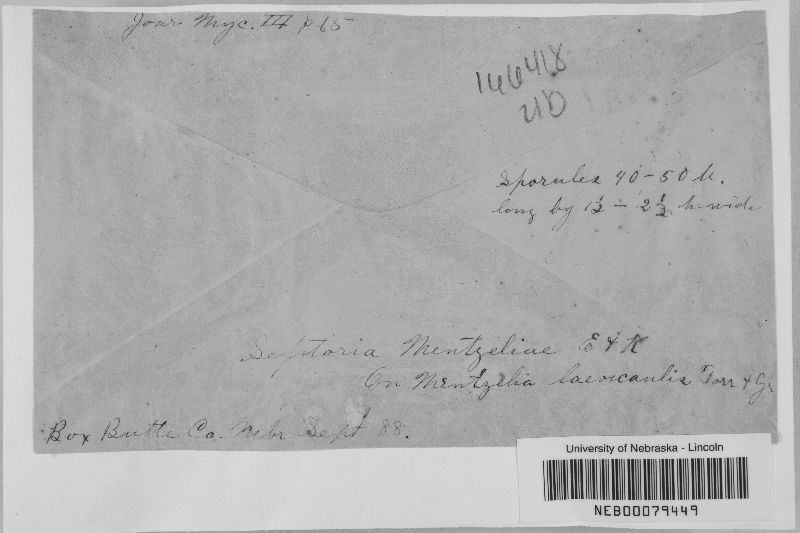 Jour Myc. III p 65
146418
UD
Sporules 40-50 µ.
long by 1½ - 2½ µ wide
Septoria Mentzeliae E & K
On Mentzelia laevicaulis Torr & Gr
Box Butte Co. Nebr Sept 88.
University of Nebraska - Lincoln
NEB00079449